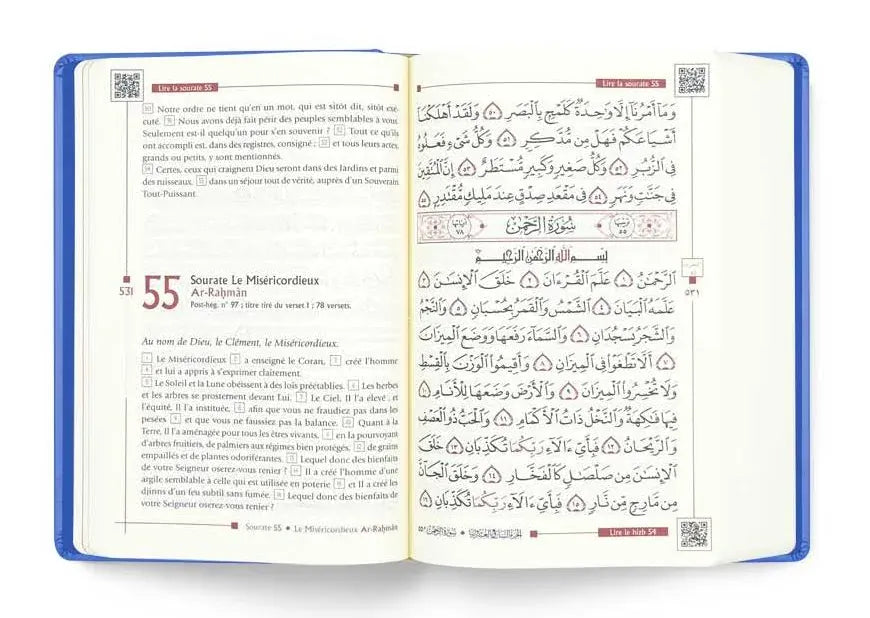 Lire la sourate 55
50 Notre ordre ne tient qu'en un mot, qui est sitôt dit, sitôt exé-
cuté. 51 Nous avons déjà fait périr des peuples semblables à vous.
Seulement est-il quelqu'un pour s'en souvenir ? 52 Tout ce qu'ils
ont accompli est, dans des registres, consigné ; 53 et tous leurs actes,
grands ou petits, y sont mentionnés.
54 Certes, ceux qui craignent Dieu seront dans des Jardins et parmi
des ruisseaux. 55 dans un séjour tout de vérité, auprès d'un Souverain
Tout-Puissant.
531
55
Sourate Le Miséricordieux
Ar-Raḥmân
Post-hég. n° 97 ; titre tiré du verset 1 ; 78 versets.
Au nom de Dieu, le Clément, le Miséricordieux.
1 Le Miséricordieux 2 a enseigné le Coran, 3 créé l'homme
4 et lui a appris à s'exprimer clairement.
5 Le Soleil et la Lune obéissent à des lois préétablies. 6 Les herbes
et les arbres se prosternent devant Lui. 7 Le Ciel, Il l'a élevé ; et
l'équité, Il l'a instituée, 8 afin que vous ne fraudiez pas dans les
pesées 9 et que vous ne faussiez pas la balance. 10 Quant à la
Terre, Il l'a aménagée pour tous les êtres vivants, 11 en la pourvoyant
d'arbres fruitiers, de palmiers aux régimes bien protégés, 12 de grains
empaillés et de plantes odoriférantes. 13 Lequel donc des bienfaits
de votre Seigneur oserez-vous renier ? 14 Il a créé l'homme d'une
argile semblable à celle qui est utilisée en poterie, 15 et Il a créé les
djinns d'un feu subtil sans fumée. 16 Lequel donc des bienfaits de
votre Seigneur oserez-vous renier ?
Sourate 55 • Le Miséricordieux Ar-Raḥmân
Lire la sourate 55
وَمَآ أَمْرُنَآ إِلَّا وَٰحِدَةٌ كَلَمْحٍۭ بِٱلْبَصَرِ ٥٠ وَلَقَدْ أَهْلَكْنَآ
أَشْيَاعَكُمْ فَهَلْ مِن مُّدَّكِرٍ ٥١ وَكُلُّ شَىْءٍ فَعَلُوهُ
فِى ٱلزُّبُرِ ٥٢ وَكُلُّ صَغِيرٍ وَكَبِيرٍ مُّسْتَطَرٌ ٥٣ إِنَّ ٱلْمُتَّقِينَ
فِى جَنَّٰتٍ وَنَهَرٍ ٥٤ فِى مَقْعَدِ صِدْقٍ عِندَ مَلِيكٍ مُّقْتَدِرٍۭ ٥٥
ترتيبها ٥٥ سُورَةُ الرَّحْمٰن آياتها ٧٨
بِسْمِ ٱللَّهِ ٱلرَّحْمَٰنِ ٱلرَّحِيمِ
ٱلرَّحْمَٰنُ ١ عَلَّمَ ٱلْقُرْءَانَ ٢ خَلَقَ ٱلْإِنسَٰنَ ٣
عَلَّمَهُ ٱلْبَيَانَ ٤ ٱلشَّمْسُ وَٱلْقَمَرُ بِحُسْبَانٍ ٥ وَٱلنَّجْمُ
وَٱلشَّجَرُ يَسْجُدَانِ ٦ وَٱلسَّمَآءَ رَفَعَهَا وَوَضَعَ ٱلْمِيزَانَ
٧ أَلَّا تَطْغَوْا۟ فِى ٱلْمِيزَانِ ٨ وَأَقِيمُوا۟ ٱلْوَزْنَ بِٱلْقِسْطِ
وَلَا تُخْسِرُوا۟ ٱلْمِيزَانَ ٩ وَٱلْأَرْضَ وَضَعَهَا لِلْأَنَامِ ١٠
فِيهَا فَٰكِهَةٌ وَٱلنَّخْلُ ذَاتُ ٱلْأَكْمَامِ ١١ وَٱلْحَبُّ ذُو ٱلْعَصْفِ
وَٱلرَّيْحَانُ ١٢ فَبِأَىِّ ءَالَآءِ رَبِّكُمَا تُكَذِّبَانِ ١٣ خَلَقَ
ٱلْإِنسَٰنَ مِن صَلْصَٰلٍ كَٱلْفَخَّارِ ١٤ وَخَلَقَ ٱلْجَآنَّ
مِن مَّارِجٍ مِّن نَّارٍ ١٥ فَبِأَىِّ ءَالَآءِ رَبِّكُمَا تُكَذِّبَانِ ١٦
٥٣١
سورة الرحمن ٥٥
Lire le hizb 54